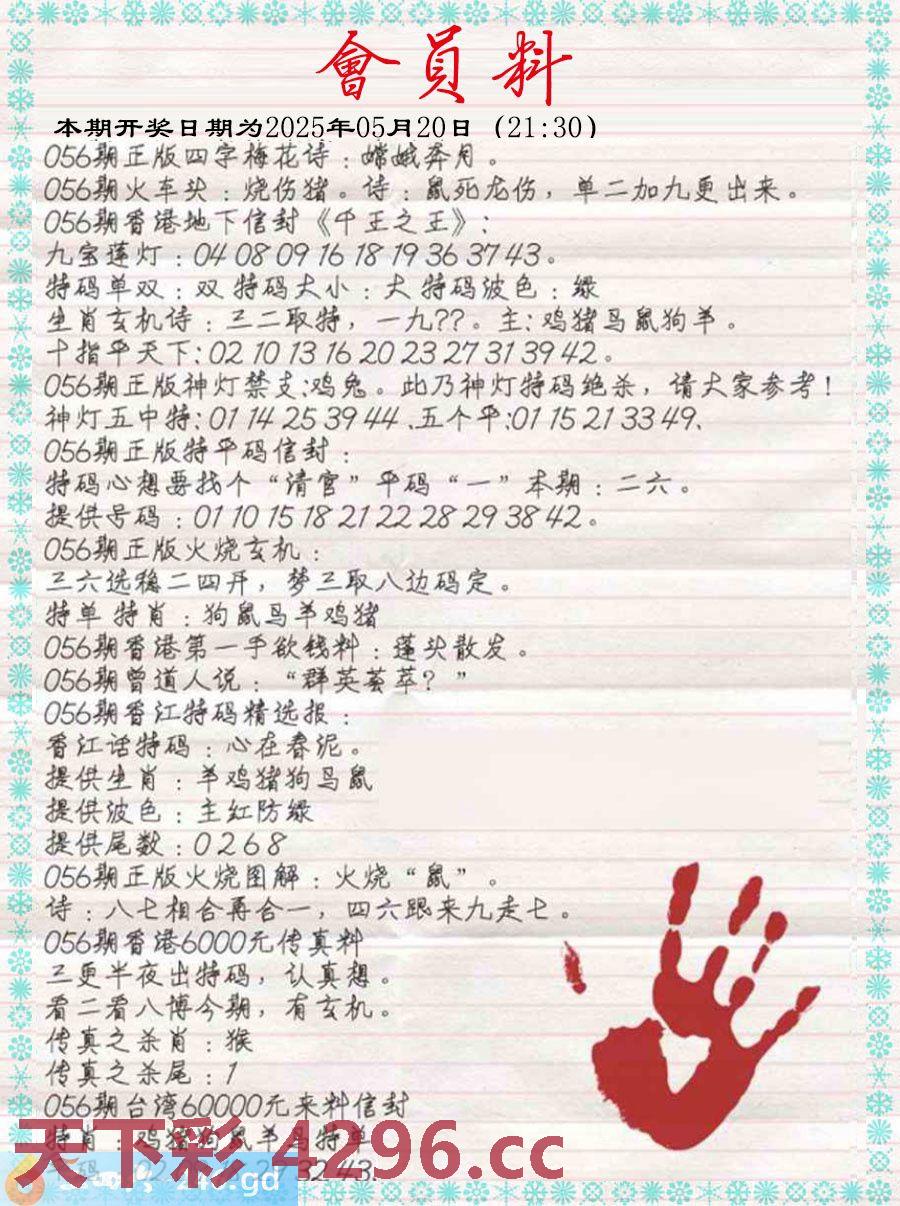 會員料
本期开奖日期为2025年05月20日（21:30）
056期正版四字梅花诗：嫦娥奔月。
056期火车头：烧伤猪。诗：鼠死龙伤，单二加九更出来。
056期香港地下信封《千王之王》：
九宝莲灯：04 08 09 16 18 19 36 37 43。
特码单双：双 特码大小：大 特码波色：绿
生肖玄机诗：三二取特，一九??。主：鸡猪马鼠狗羊。
十指平天下：02 10 13 16 20 23 27 31 39 42。
056期正版神灯禁支：鸡兔。此乃神灯特码绝杀，请大家参考！
神灯五中特：01 14 25 39 44 、五个平：01 15 21 33 49、
056期正版特平码信封：
特码心想要找个“清官”平码“一”本期：二六。
提供号码：01 10 15 18 21 22 28 29 38 42。
056期正版火烧玄机：
三六选稳二四开，梦三取八边码定。
特单 特肖：狗鼠马羊鸡猪
056期香港第一手欲钱料：蓬头散发。
056期曾道人说：“群英荟萃？”
056期香江特码精选报：
香江话特码：心在春泥。
提供生肖：羊鸡猪狗马鼠
提供波色：主红防绿
提供尾数：0 2 6 8
056期正版火烧图解：火烧“鼠”。
诗：八七相合再合一，四六跟来九走七。
056期香港6000元传真料
三更半夜出特码，认真想。
看二看八博今期，有玄机。
传真之杀肖：猴
传真之杀尾：1
056期台湾60000元来料信封
特肖：鸡猪狗鼠羊马特单
32 43.
天下彩 4296.cc
246.gd